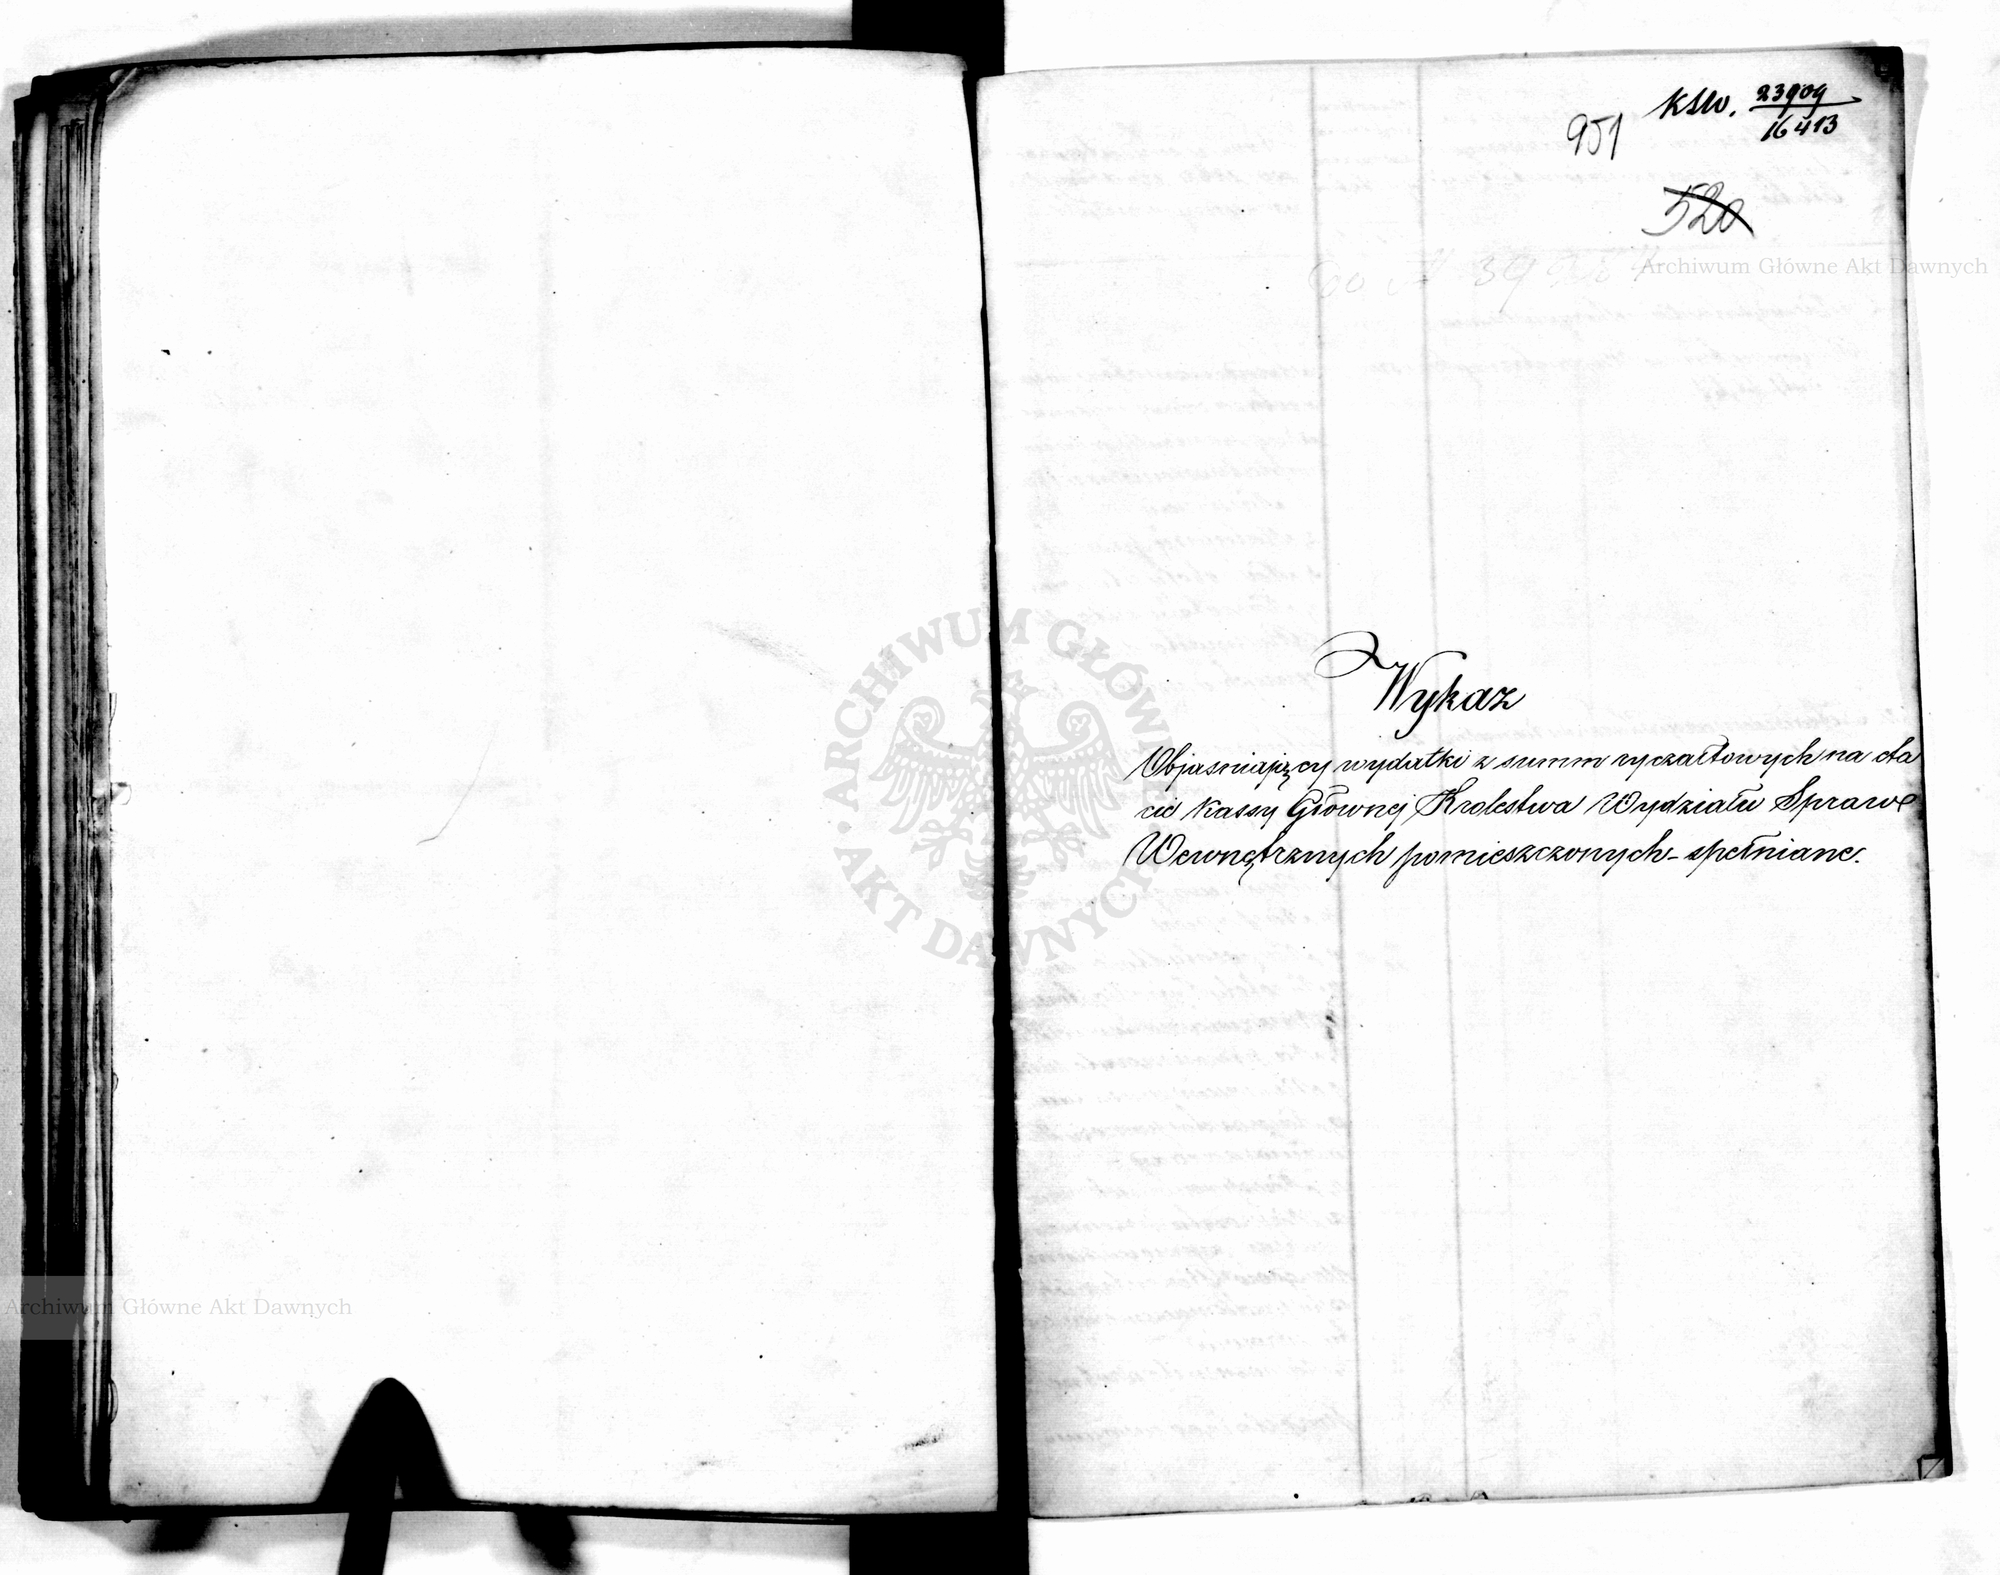 KSW. 23909
16413
951
520
Archiwum Główne Akt Dawnych
Wykaz
Objasniający wydatki z summ ryczałtowych na eta
cie Kassy Głównej Krolestwa Wydziału Spraw
Wewnętrznych pomieszczonych - spełniane.
ARCHIWUM GŁÓWNE
AKT DAWNYCH
Archiwum Główne Akt Dawnych